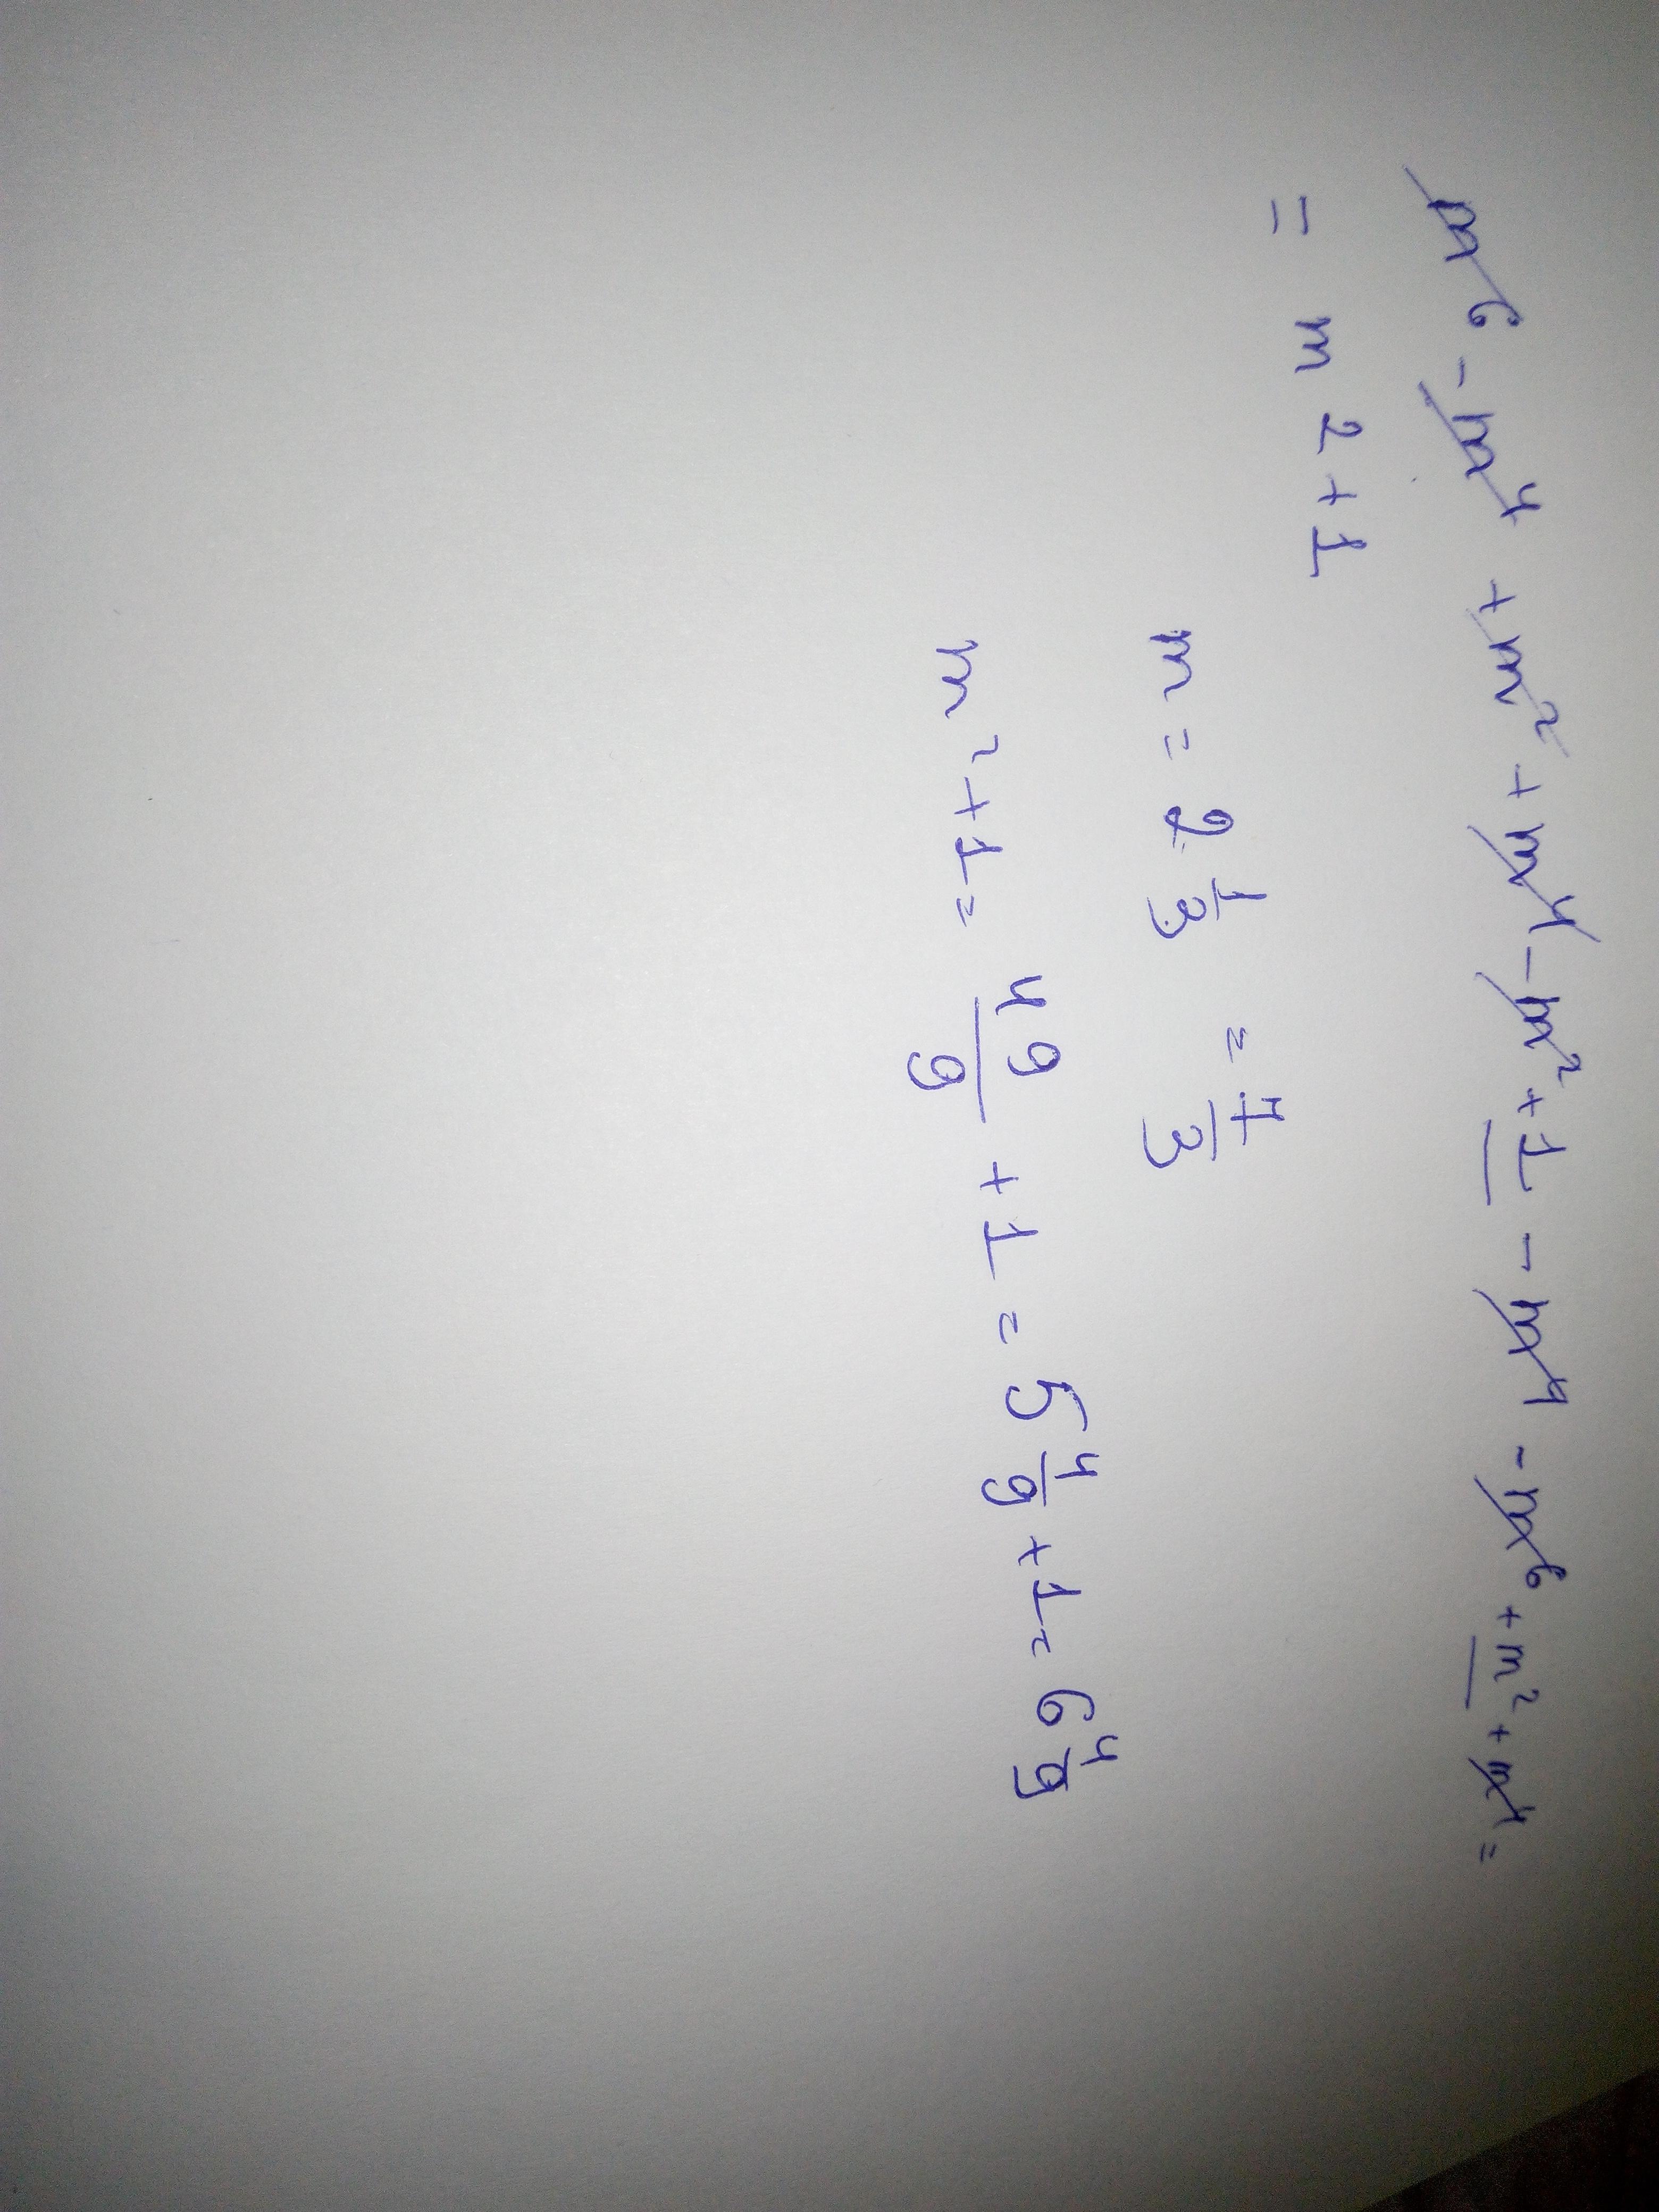 m⁶ - m⁴ + m² + m⁴ - m² + 1 - m⁴ - m⁶ + m² + m⁴ =
= m² + 1
m = 2 1/3 = 7/3
m² + 1 = 49/9 + 1 = 5 4/9 + 1 = 6 4/9